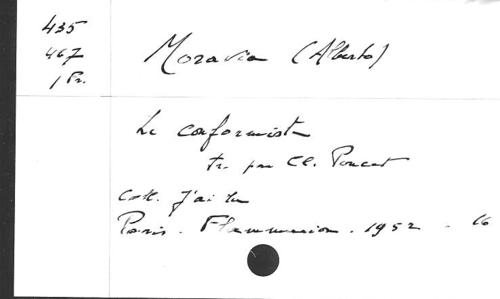 435
467
1 Pr.
Moravia (Alberto)
Le conformiste
tr. par Cl. Poncet
Coll. J'ai lu
Paris. Flammarion. 1952 - 16